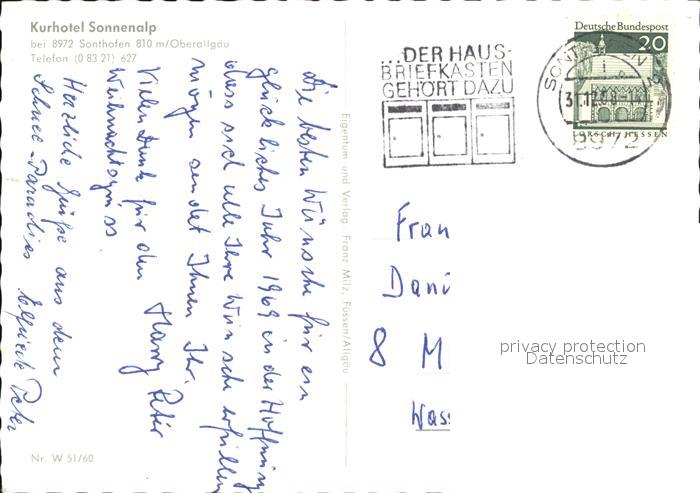 Kurhotel Sonnenalp
bei 8972 Sonthofen 810 m/Oberallgäu
Telefon (0 83 21) 627
Die besten Wünsche für ein
glückliches Jahr 1969 in der Hoffnung
dass sich alle Ihre Wünsche erfüllen
mögen sendet Ihnen Ihr
Harry Peter
Vielen Dank für den
Weihnachtsgruss
Herzliche Grüße aus dem
Schnee-Paradies Elfriede Peter
Nr. W 51/60
Eigentum und Verlag: Franz Milz, Füssen/Allgäu
...DER HAUS-
BRIEFKASTEN
GEHÖRT DAZU
Deutsche Bundespost
20
LORSCH/HESSEN
SONTHOFEN
8972
Frau
Dani
8 M
Was
privacy protection
Datenschutz